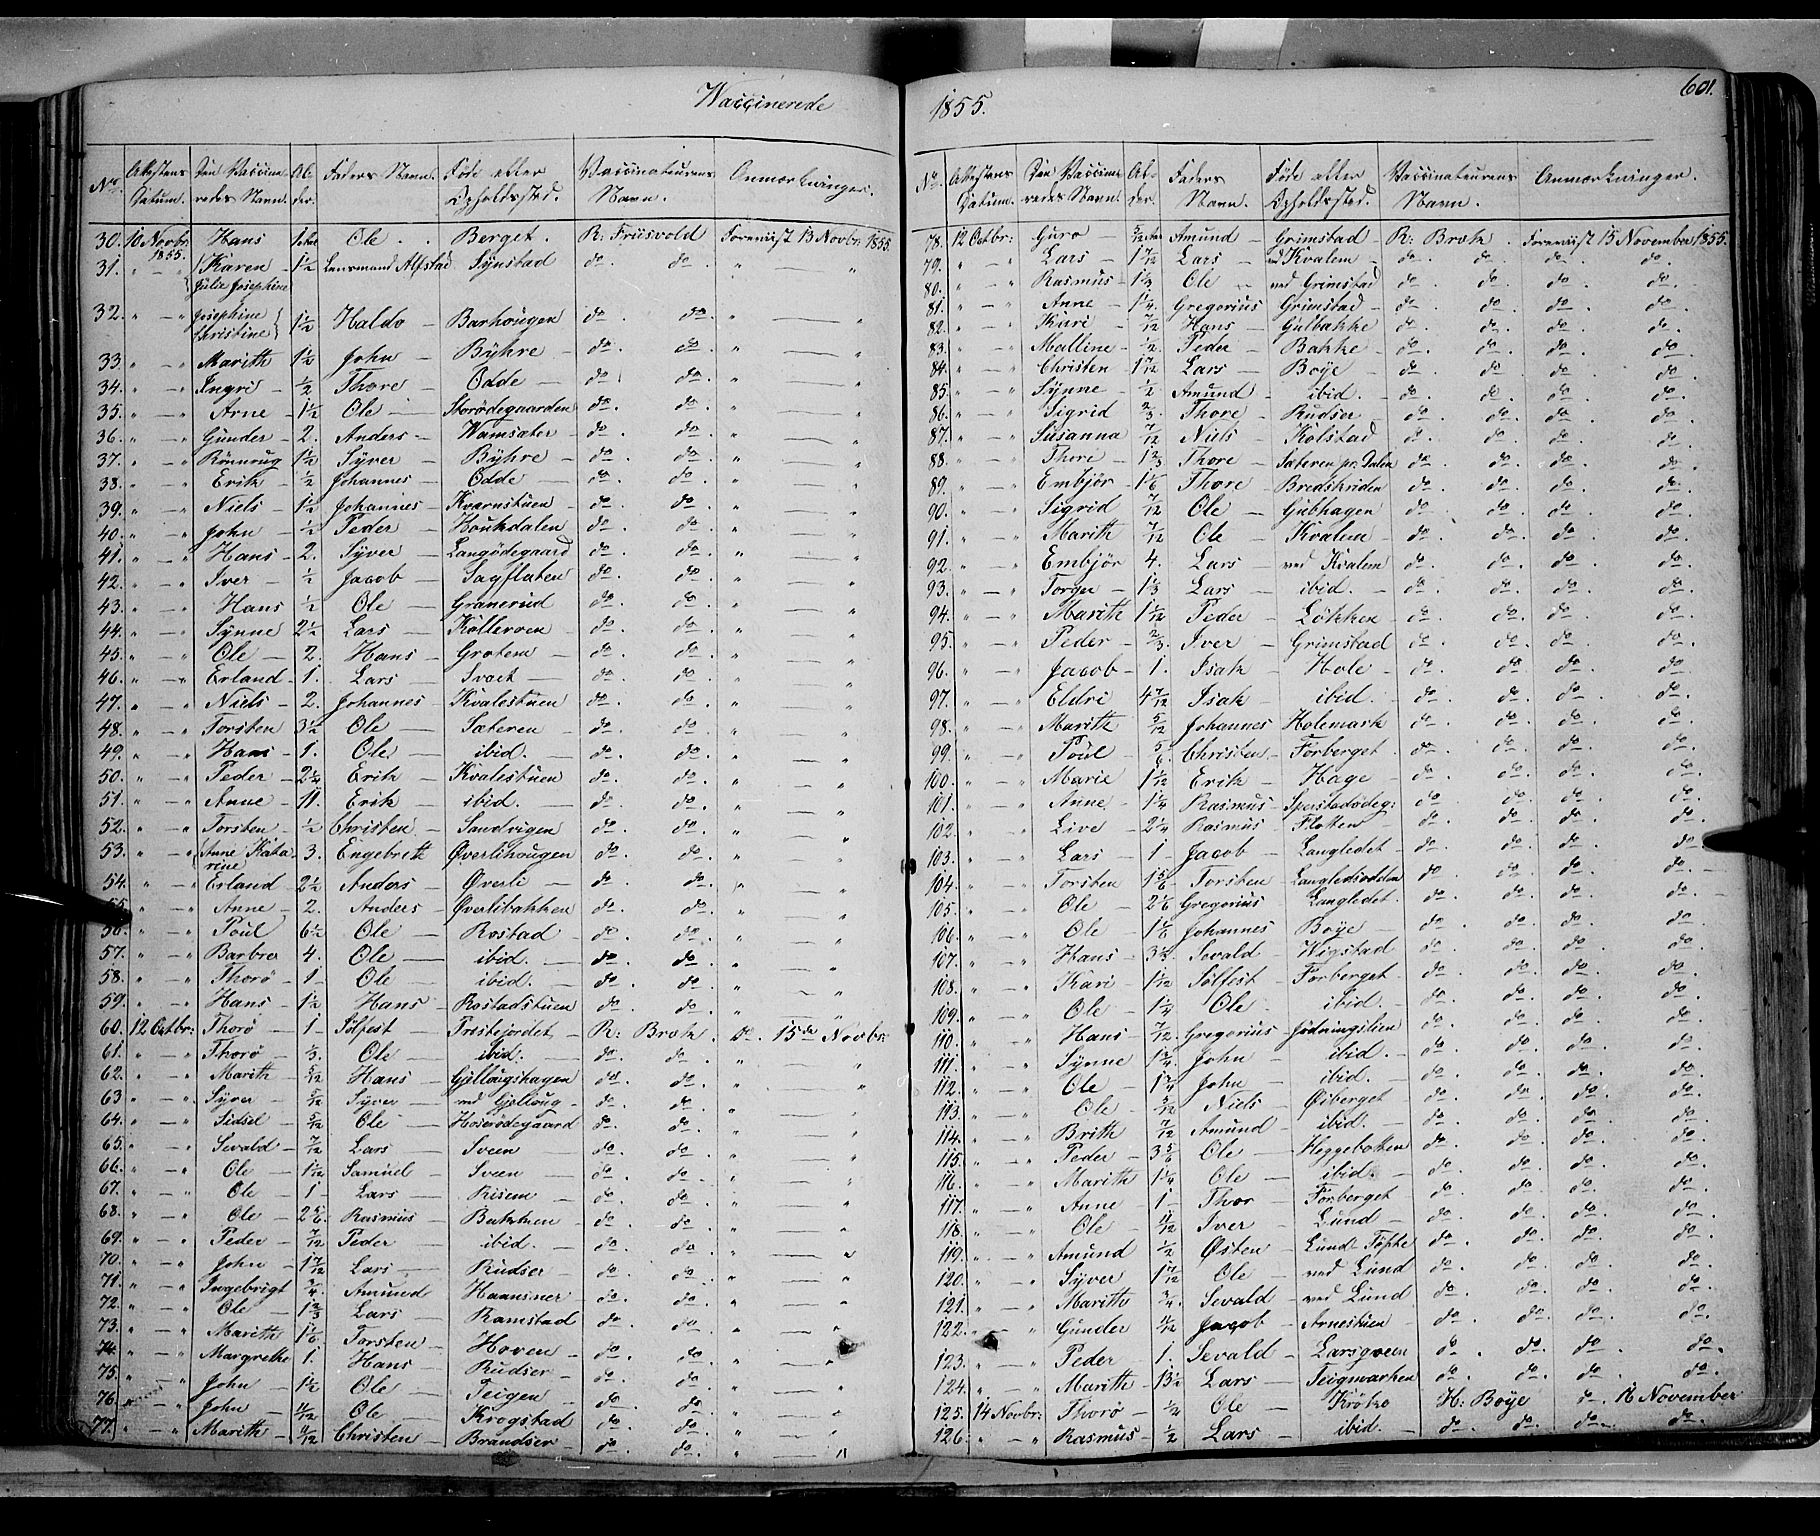 Vaccinerede
No. Attestens Datum. Den Vaccineredes Navn. Alder. Faders Navn. Føde eller Opholdssted. Vaccinateurens Navn. Anmærkninger.
30. 10 Novbr: 1855. Hans 1 Ole Berget. R: Friisvold Foreviist 13 Novbr: 1855.
31. " — " Karen Julia Josephine 1½ Lensmand Alfstad Synstad do. do. " — "
32. " — " Josephine Christine 1½ Haldo — Barhougen do. do. " — "
33. " — " Marith 1½ John — Byhre — do. do. " — "
34. " — " Ingri — ½ Thore — Odde — do. do. " — "
35. " — " Arne — 1½ Ole — Storødegaarden do. do. " — "
36. " — " Gunder — 2. Anders — Wamsater — do. do. " — "
37. " — " Rønnaug 1½ Syver — Byhre — do. do. " — "
38. " — " Erik — ½ Johannes — Odde — do. do. " — "
39. " — " Niels — 1½ Johannes — Kvarnstuen do. do. " — "
40. " — " John — ½ Peder — Houkdalen do. do. " — "
41. " — " Hans — 2. Syver — Langødegaard do. do. " — "
42. " — " Iver — ½ Jacob — Sagflaten do. do. " — "
43. " — " Hans ½ Ole — Granerud do. do. " — "
44. " — " Synne 2½ Lars — Kolleroen do. do. " — "
45. " — " Ole — 2. Hans — Grotem — do. do. " — "
46. " — " Erland — 1. Lars — Svoet — do. do. " — "
47. " — " Niels — 2. Johannes — Kvalestuen do. do. " — "
48. " — " Torsten 3½ Ole — Sæteren — do. do. " — "
49. " — " Hans — 1. Ole — ibid. — do. do. " — "
50. " — " Peder — 2¼ Erik — Kvalestuen do. do. " — "
51. " — " Anne — 11. Erik — ibid. — do. do. " — "
52. " — " Torsten — ½ Christen — Sandvigen do. do. " — "
53. " — " Anne Katarine 3. Engebrith Øverlihougen do. do. " — "
54. " — " Erland — 2½ Anders — Øverli — do. do. " — "
55. " — " Anne — 2. Anders — Øverlibakken do. do. " — "
56. " — " Poul 6½ Ole — Rostad — do. do. " — "
57. " — " Barbro 4. Ole — ibid. — do. do. " — "
58. " — " Thorø — 1 — Ole — ibid. — do. do. " — "
59. " — " Hans — 1½ Hans — Rostadstuen do. do. " — "
60. 12 Octbr: Thorø — 1 — Sølfest — Trostejordet R: Brok. do. 15de Novbr:
61. " — " Thorø — ⅓. Ole — ibid. — do. do. " — "
62. " — " Marith — 5/12 Hans — Gjellougshagen do. do. " — "
63. " — " Syver — 5/12 Syver — ved Gjelloug — do. do. " — "
64. " — " Sidsel — 5/12 Ole — Hoserødegaard do. do. " — "
65. " — " Sevald — 7/12 Lars — Sveen — do. do. " — "
66. " — " Ole — 1 1/12 Samuel — Sveen — do. do. " — "
67. " — " Ole — 1 — Lars — Risem — do. do. " — "
68. " — " Ole — 2 5/6 Rasmus — Bakken — do. do. " — "
69. " — " Peder — 7/12 Peder — ibid. — do. do. " — "
70. " — " John — 1 7/12 Lars — Rudser — do. do. " — "
71. " — " Ingebrigt ¾ Amund — Haansner — do. do. " — "
72. " — " Ole — 1⅔ Lars — Ramstad do. do. " — "
73. " — " Marith — 1⅙ Torsten — Hoven — do. do. " — "
74. " — " Margrethe 1. Hans — Rudser — do. do. " — "
75. " — " John — 1½ Ole — Teigen — do. do. " — "
76. " — " John — 11/12 Ole — Krogstad — do. do. " — "
77. " — " Marith — 11/12 Christen — Brandser — do. do. " — "
1855. 601.
No. Attestens Datum. Den Vaccineredes Navn. Alder. Faders Navn. Føde eller Opholdssted. Vaccinateurens Navn. Anmærkninger.
78. 12 Octbr: Guro — Amund — Grimstad — R: Brok. Foreviist 15 November 1855.
79. " — " Lars — 1 7/12 Lars — ved Kvalem — do. do. do. do.
80. " — " Rasmus — 1⅓ Ole — ved Grimstad do. do. do. do.
81. " — " Anne — 1¼ Gregorius Grimstad — do. do. do. do.
82. " — " Kari — 7/12 Hans — Gulbakke do. do. do. do.
83. " — " Malline — ½ Peder — Bakke — do. do. do. do.
84. " — " Christen — 1 7/12 Lars — Boye — do. do. do. do.
85. " — " Synne — ½ Amund — ibid. — do. do. do. do.
86. " — " Sigrid ⅔ Thore — Rudser — do. do. do. do.
87. " — " Susanna 7/12 Niels — Kolstad — do. do. do. do.
88. " — " Thore — 1⅔ Thore — Sæteren pr. Dalen do. do. do. do.
89. " — " Embjør — 1⅙ Thore — Bredskriden do. do. do. do.
90. " — " Sigrid 7/12 Ole — Gubhagen do. do. do. do.
91. " — " Marith 7/12 Ole — Kvalem — do. do. do. do.
92. " — " Embjør 4. Lars — ved Kvalem do. do. do. do.
93. " — " Torger — 1⅓ Lars — ibid. — do. do. do. do.
94. " — " Marith 1 1/12 Peder — Løkken — do. do. do. do.
95. " — " Peder — ⅔ Iver — Grimstad do. do. do. do.
96. " — " Jacob — 1. Isak — Hole — do. do. do. do.
97. " — " Eldri 4 7/12 Isak — ibid — do. do. do. do.
98. " — " Marith 5/12 Johannes Holemark do. do. do. do.
99. " — " Poul — 5/6 Christen — Forberget — do. do. do. do.
100. " — " Marie 1 1/12 Erik — Hage — do. do. do. do.
101. " — " Anne — 1¼ Rasmus — Sperstadødeg: do. do. do. do.
102. " — " Live — 2¼ Rasmus — Flotten — do. do. do. do.
103. " — " Lars — 1 — Jacob — Langledet — do. do. do. do.
104. " — " Torsten 1 5/6 Torsten — Langledsodden do. do. do. do.
105. " — " Ole — 2⅙ Gregorius — Langledet — do. do. do. do.
106. " — " Ole — 1⅙ Johannes Boye — do. do. do. do.
107. " — " Hans — 3½ Sevald — Wigstad do. do. do. do.
108. " — " Kari — 1 1/12 Sølfest — Forberget — do. do. do. do.
109. " — " Ole — 1¼ Ole — ibid. — do. do. do. do.
110. " — " Hans — 7/12 Gregorius — Jødningslien do. do. do. do.
111. " — " Synne — 1¾ John — ibid. — do. do. do. do.
112. " — " Ole — 1¾ John — ibid. — do. do. do. do.
113. " — " Ole — 5/12 Niels — Øiberget — do. do. do. do.
114. " — " Brith — 7/12 Amund — ibid. — do. do. do. do.
115. " — " Peder — 3 5/6 Ole — Heggebotten do. do. do. do.
116. " — " Marith 1¼ Ole — ibid. — do. do. do. do.
117. " — " Anne — 1 — Thor — Forberget do. do. do. do.
118. " — " Ole — 11/12 Iver — Lund — do. do. do. do.
119. " — " Amund ½ Østen — Lund Tøfte do. do. do. do.
120. " — " Syver 1 7/12 Ole — ved Lund do. do. do. do.
121. " — " Marith ¾ Sevald — ved Lund do. do. do. do.
122. " — " Gunder 11/12 Jacob — Arnestuen do. do. do. do.
123. " — " Peder — 1. Sevald — Larsgveen do. do. do. do.
124. " — " Marith — 13½ Lars — Teigmarken do. do. do. do.
125. 14 Novbr: Thorø — ½ Ole — Krøke H: Boye do. 16 November
126. " — " Rasmus — ½ Lars — ibid. — do. do. do. do.